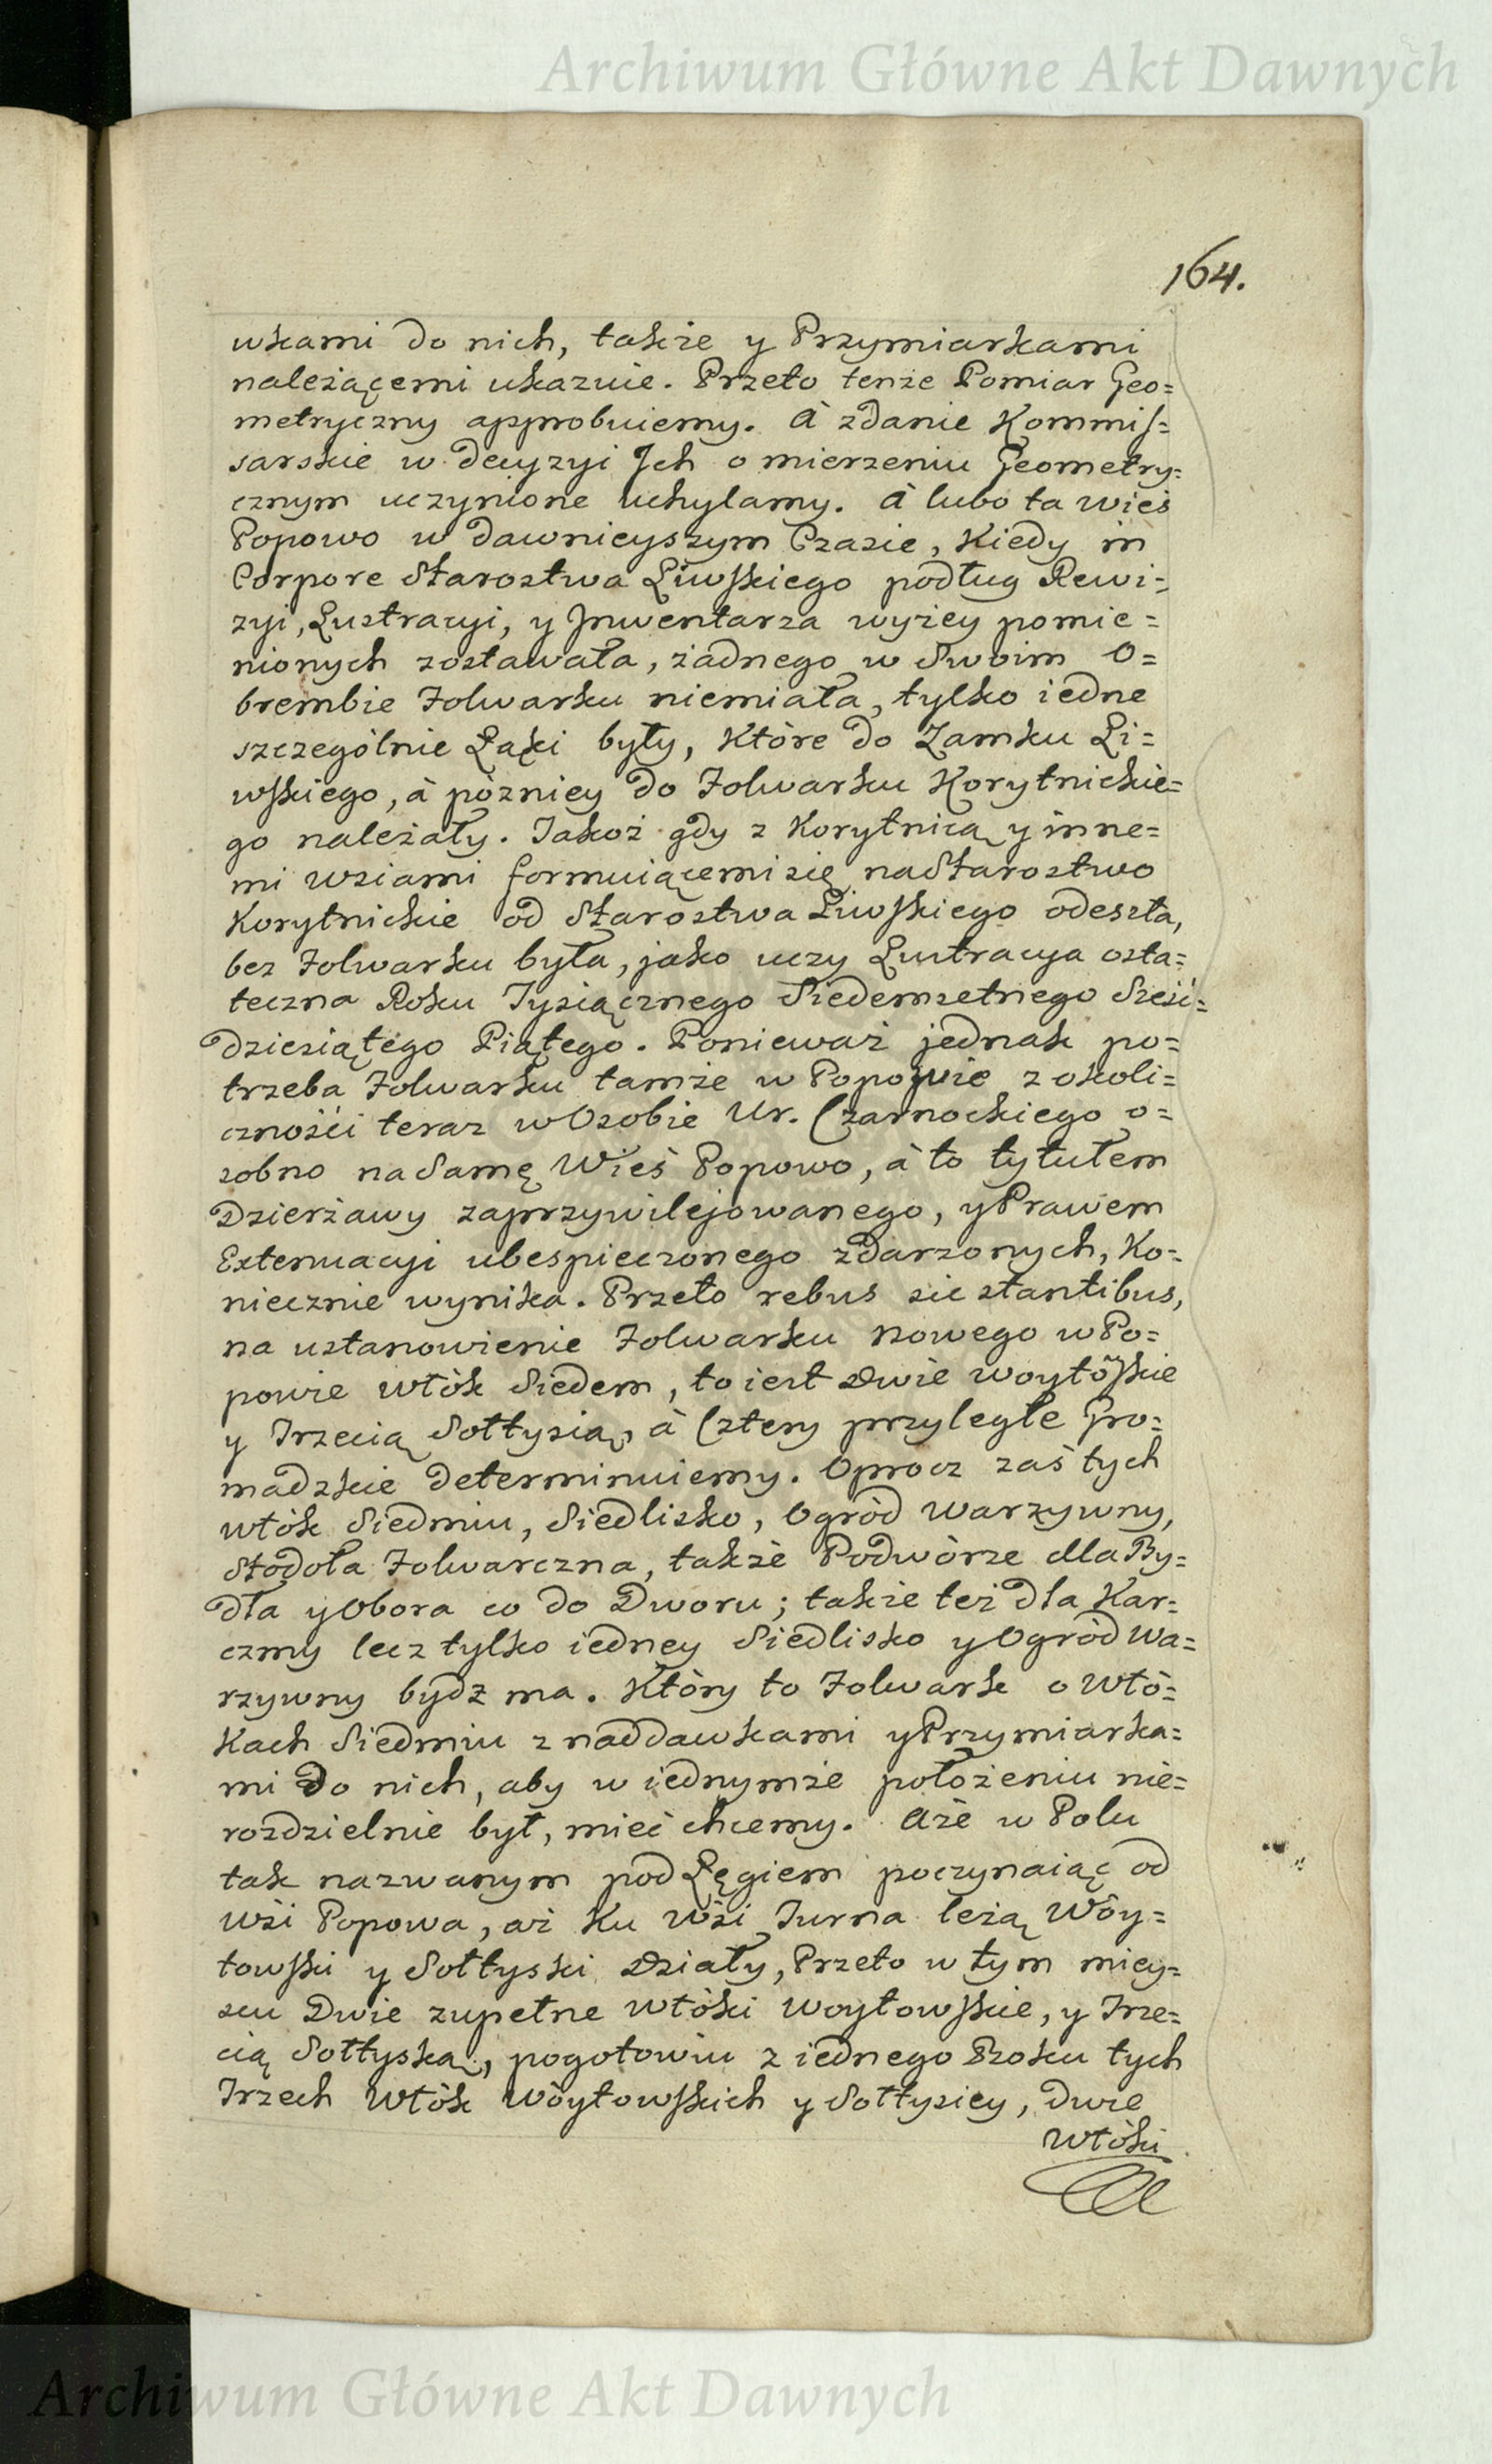 Archiwum Główne Akt Dawnych
164.
wkami do nich, także y Przymiarkami
należącemi ukazuie. Przeto tenże Pomiar Geo=
metryczny approbuiemy. à zdanie Kommis=
sarskie w decyzyi Jch o mierzeniu Geometry=
cznym uczynione uchylamy. à lubo ta wieś
Popowo w dawnieyszym Czasie, Kiedy in
Corpore Starostwa Liwskiego podług Rewi=
zyi, Lustracyi, y Jnwentarza wyżey pomie=
nionych zostawała, żadnego w Swoim O=
brembie Folwarku niemiała, tylko iedne
szczególnie Łąki były, Które do Zamku Li=
wskiego, à pózniey do Folwarku Korytnickie=
go należały. Jakoż gdy z Korytnicą y inne=
mi wsiami formuiącemi się na Starostwo
Korytnickie od Starostwa Liwskiego odeszła,
bez Folwarku była, jako uczy Lustracya osta=
teczna Roku Tysiącznego Siedemsetnego Sześć=
dziesiątego Piątego. Ponieważ jednak po=
trzeba Folwarku tamże w Popowie z okoli=
czności teraz w Osobie Ur. Czarnockiego o=
sobno na Samę Wieś Popowo, à to tytułem
Dzierżawy zaprzywilejowanego, y Prawem
Extenuacyi ubespieczonego zdarzonych, Ko=
niecznie wynika. Przeto rebus sic stantibus,
na ustanowienie Folwarku nowego w Po=
powie włók Siedem, to iest Dwie woytóskie
y Trzecią Sołtysią, à Cztery przyległe Gro=
madzkie determinuiemy. Oprocz zaś tych
włók Siedmiu, Siedlisko, Ogród Warzywny,
Stodoła Folwarczna, także Podwórze dla By=
dła y Obora co do Dworu; także też dla Kar=
czmy lecz tylko iedney Siedlisko y Ogród Wa=
rzywny bydź ma. Który to Folwark o Włó=
Kach Siedmiu z naddawkami y Przymiarka=
mi do nich, aby w iednymże położeniu nie=
rozdzielnie był, mieć chcemy. Aże w Polu
tak nazwanym pod Łęgiem poczynaiąc od
Wsi Popowa, aż Ku Wsi Turna leżą Wóy=
towski y Sołtyski Działy, Przeto w tym miey=
scu Dwie zupełne Włóki Woytowskie, y Trze=
cią Sołtyską, pogotowiu z iednego Boku tych
Trzech Włók Wóytowskich y Sołtysiey, dwie
Włóki
Archiwum Główne Akt Dawnych